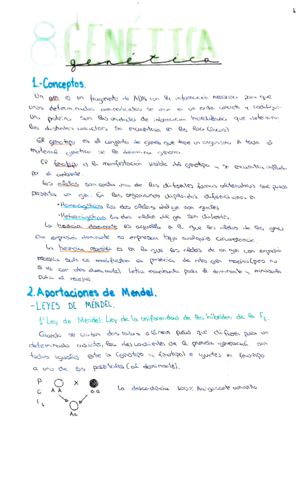 8 GENÉTICA
genética
1.-Conceptos.
Un gen es un fragmento de ADN con la información necesaria para que
unos determinados
Los distintos caracteres. Se encuentran en los loci (locus)
El genotipo es el conjunto de genes que tiene un organismo. A todo el
material genético se le denomina genoma.
El fenotipo es la manifestación visible del genotipo y se encuentra influida
por el ambiente.
Los alelos son cada una de las diferentes formas alternativas que puede
presentar un gen. En los organismos diploides diferenciamos a:
·Homocigóticos: los dos alelos del gen son iguales.
·Heterocigóticos: los dos alelos del gen son diferentes.
La herencia dominante es aquella en la que los alelos de los genes
con expresión dominante se expresan bajo cualquier circunstancia.
La herencia recesiva es en la que los alelos de un gen con expresión
recesiva solo se manifiestan en presencia de otro gen recesivo (pero no
si va con uno dominante). Letra mayúscula para el dominante y minúscula
para el recesivo.
2.Aportaciones de Mendel.
-LEYES DE MENDEL.
1ª Ley de Mendel: Ley de la uniformidad de los híbridos de la F1.
Cuando se cruzan dos razas puras que difieren para un
determinado carácter, los descendientes de la primera generación son
todos iguales entre sí (genotipo y fenotipo) e iguales en fenotipo
a uno de los parentales (el dominante).
P AA X aa
G A a
F1 Aa
La descendencia: 100%